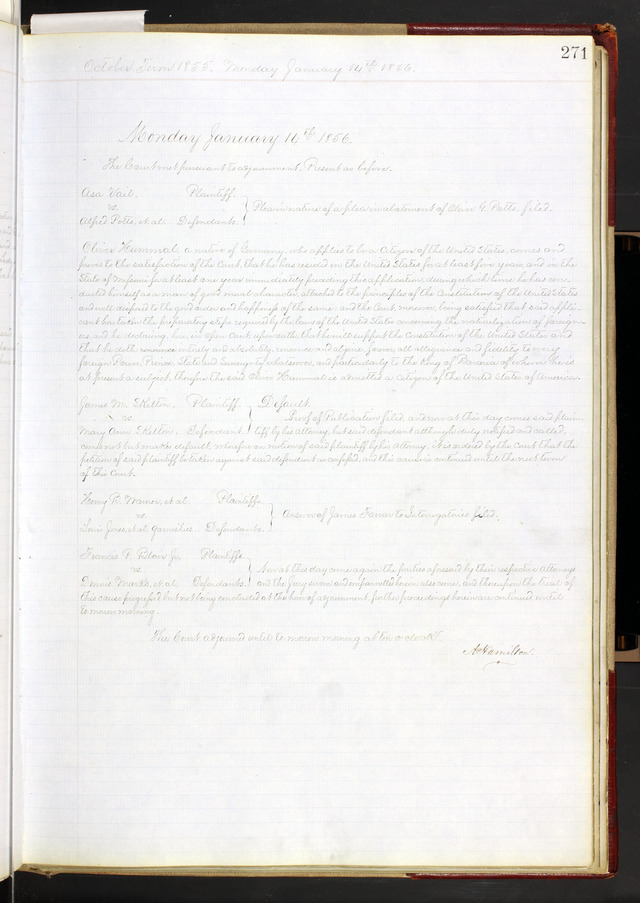 271
October Term 1855. Monday January 14th 1856.
Monday January 14th 1856.
The Court met pursuant to adjournment. Present as before.
Asa Vail. Plaintiff
vs
Alfred Potts, et al. Defendants.
Plea in nature of a plea in abatement of G. Potts filed.
Hummal a native of Germany, who applies to be a Citizen of the United States, comes and
proves to the satisfaction of the Court, that he has resided in the United States for at least five years, and in the
State of Missouri for at least one year immediately preceding this application, during which time he has con-
ducted himself as a man of good moral character, attached to the principles of the Constitution of the United States
and well disposed to the good order and happiness of the same, and the Court moreover, being satisfied that said appli-
cant has taken the preparatory steps required by the laws of the United States concerning the naturalization of foreign-
ers and he declaring here, in open Court upon oath, that he will support the Constitution of the United States and
that he doth renounce entirely and absolutely renounce and abjure, forever, all allegiance and fidelity to every
foreign Power, Prince, State and Sovereignty whatsoever, and particularly to the King of Bavaria of whom he is
at present a subject, therefore the said Hummal is admitted a citizen of the United States of America.
James M. Skelton, Plaintiff
vs
Mary Ann Skelton, Defendant
Default.
Proof of Publication filed, and now at this day comes said plain-
tiff by his attorney, but said defendant although duly notified and called,
comes not but makes default wherefore on motion of said plaintiff by his attorney. It is ordered by the Court that the
petition of said plaintiff be taken against said defendant as confessed, and this cause is continued until the next term
of this Court.
Henry R. Warner, et al. Plaintiff
vs
Louis Jones, et al. garnishees. Defendants.
Answer of James to Interrogatories filed.
Francis P. Blair Jr. Plaintiffs
vs
Dennis Marks, et al. Defendants.
Now at this day come again the parties aforesaid by their respective Attorneys
and the Jury sworn and impannelled herein also come, and thereupon the trial of
this cause progressed but not being concluded at the hour of adjournment, further proceedings herein are continued until
to morrow morning.
The Court adjourned until to morrow morning at ten o'clock.
A Hamilton